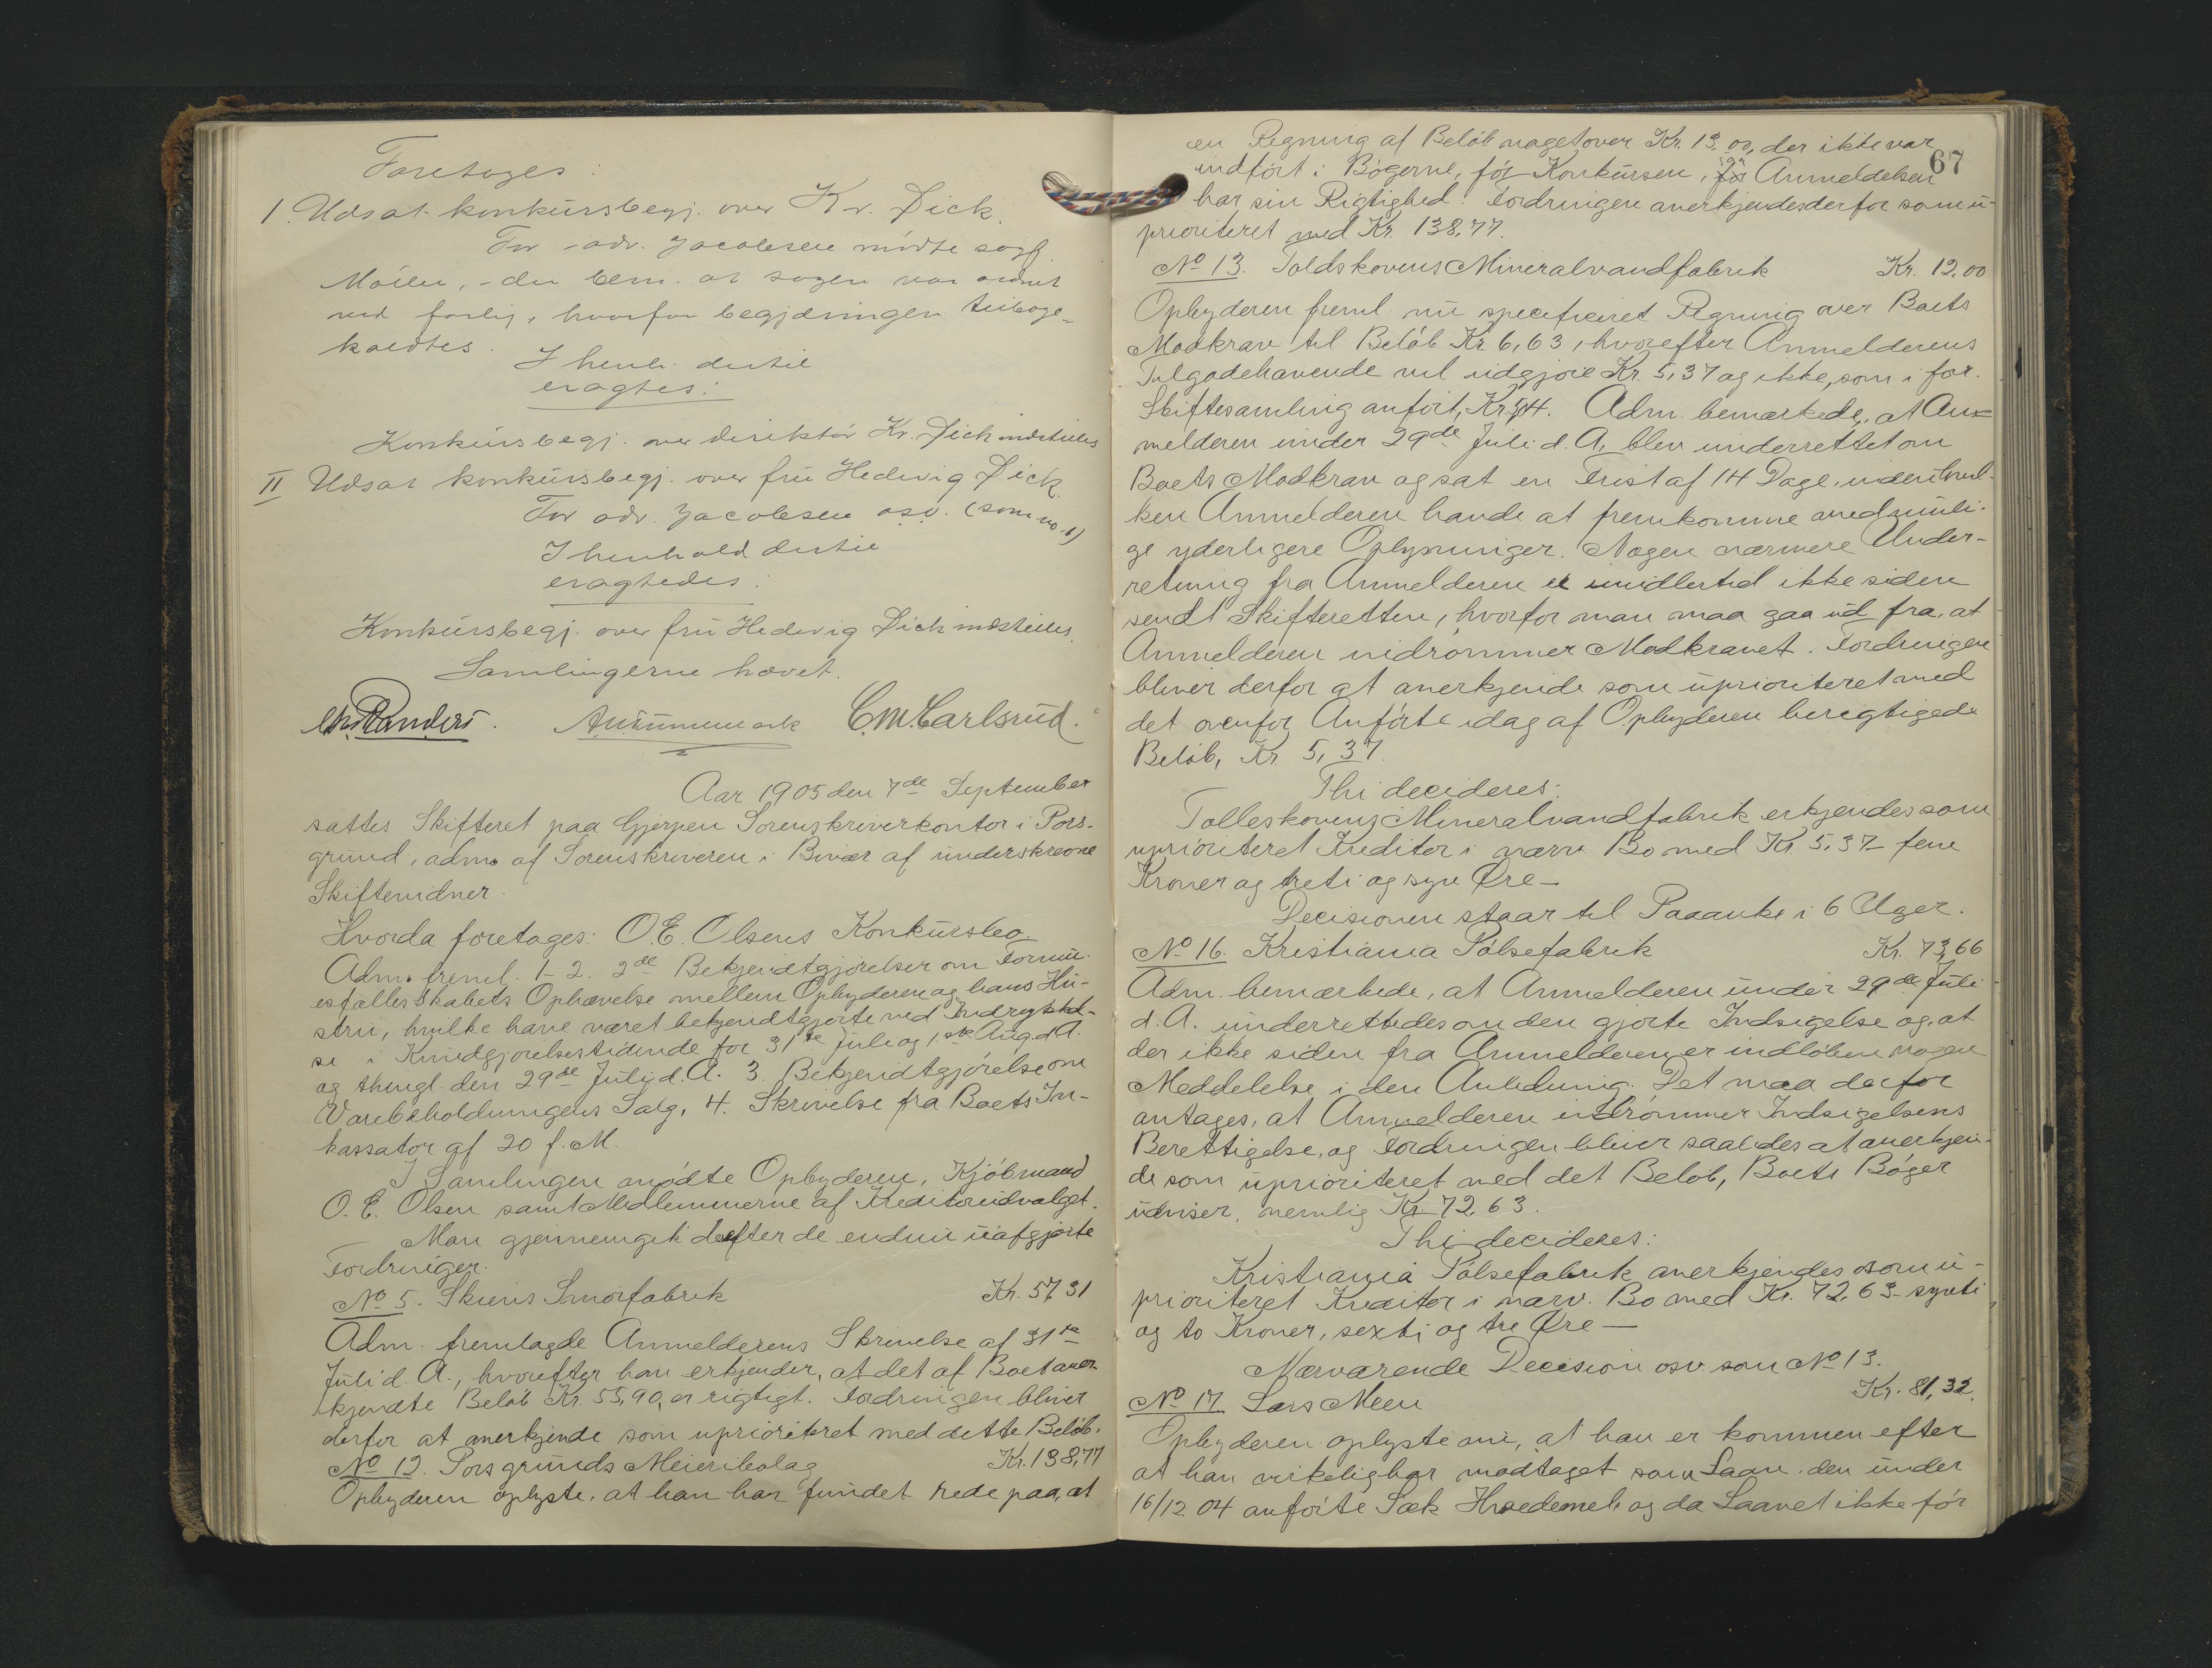 Foretoges:
I. Udsat konkursbegj. over Kr. Dick.
For adv. Jacobsen mödte sagf.
Möller, - der bem. at sagen var ordnet
ved forlig, hvorfor begjæringen tilbage-
kaldtes.
I henh. dertil
eragtes:
Konkursbegj. over direktör Kr. Dick indstilles
II Udsat konkursbegj. over fru Hedevig Dick.
For adv. Jacobsen osv. (som no. 1)
I henhold dertil
eragtedes:
Konkursbegj. over fru Hedevig Dick indstilles.
Samlingerne hævet.
Randers. C.M. Carlsrud.
Aar 1905 den 7de September
sattes Skifteret paa Gjerpen Sorenskriverkontor i Pors-
grund, adm. af Sorenskriveren i Bivær af underskrevne
Skiftevidner.
Hvorda foretoges: O.E. Olsens Konkursbo
Adm. freml. 1-2. 2de Bekjendtgjörelser om Formu-
esfællesskabets Ophævelse mellem Opbyderen og hans Hu-
stru, hvilke have været bekjendtgjorte ved Indrykkel-
se i Kundgjörelsestidende for 31te Juli og 1ste Aug. d. A.
og thingl. den 29de Juli d. A. 3. Bekjendtgjörelse om
Varebeholdningens Salg, 4. Skrivelse fra Boets In-
kassator af 20 f. M.
I Samlingen mödte Opbyderen, Kjöbmand
O. E. Olsen samt Medlemmerne af Kreditorudvalget.
Man gjennemgik derefter de endnu uafgjorte
Fordringer.
No 5. Skiens Smörfabrik Kr. 57,31
Adm. fremlagde Anmelderens Skrivelse af 31te
Juli d. A., hvorefter han erkjender, at det af Boet aner-
kjendte Belöb Kr. 55,90, er rigtigt. Fordringen bliver
derfor at anerkjende som uprioriteret med dette Belöb.
No 12. Porsgrunds Meieribolag Kr. 138,77
Opbyderen oplyste, at han har fundet rede paa, at
67
en Regning af Belöb noget over Kr. 13.00, der ikke var
indfört i Bögerne, för Konkursen, saa Anmeldelsen
har sin Rigtighed. Fordringen anerkjendes derfor som u-
prioriteret med Kr. 138,77.
No 13. Toldskovens Mineralvandfabrik Kr. 12.00
Opbyderen freml. nu specificeret Regning over Boets
Modkrav til Belöb Kr 6,63, hvorefter Anmelderens
Tilgodehavende vil udgjöre Kr. 5,37 og ikke, som i for.
Skiftesamling anfört, Kr. 5,14. Adm. bemærkede, at An-
melderen under 29de Juli d. A. blev underrettet om
Boets Modkrav og sat en Frist af 14 Dage, inden hvil-
ken Anmelderen havde at fremkomme med muli-
ge yderligere Oplysninger. Nogen nærmere Under-
retning fra Anmelderen er imidlertid ikke siden
sendt Skifteretten, hvorfor man maa gaa ud fra, at
Anmelderen indrömmer Modkravet. Fordringen
bliver derfor at anerkjende som uprioriteret med
det ovenfor Anförte idag af Opbyderen berigtigede
Belöb, Kr. 5,37.
Thi decideres:
Tolleskovens Mineralvandfabrik erkjendes som
uprioriteret Kreditor i nærv. Bo med Kr 5,37 - fem
Kroner og treti og syv Öre -
Decisionen staar til Paaanke i 6 Uger.
No 16. Kristiania Pölsefabrik Kr. 73,66
Adm. bemærkede, at Anmelderen under 29de Juli
d. A. underrettedes om den gjorte Indsigelse og, at
der ikke siden fra Anmelderen er indlöben nogen
Meddelelse i den Anledning. Det maa derfor
antages, at Anmelderen indrömmer Indsigelsens
Berettigelse, og Fordringen bliver saaledes at anerkjen-
de som uprioriteret med det Belöb, Boets Böger
udviser, nemlig Kr. 72,63.
Thi decideres:
Kristiania Pölsefabrik anerkjendes som u-
prioriteret Kreditor i nærv. Bo med Kr. 72,63 - sytti
og to Kroner, sexti og tre Öre -
Nærværende Decision osv. som No 13.
No 17 Lars Meen Kr. 81,32.
Opbyderen oplyste nu, at han er kommen efter
at han virkelig har modtaget som Laan den under
16/12 04 anförte Sæk Hvedemel, og da Laanet ikke för